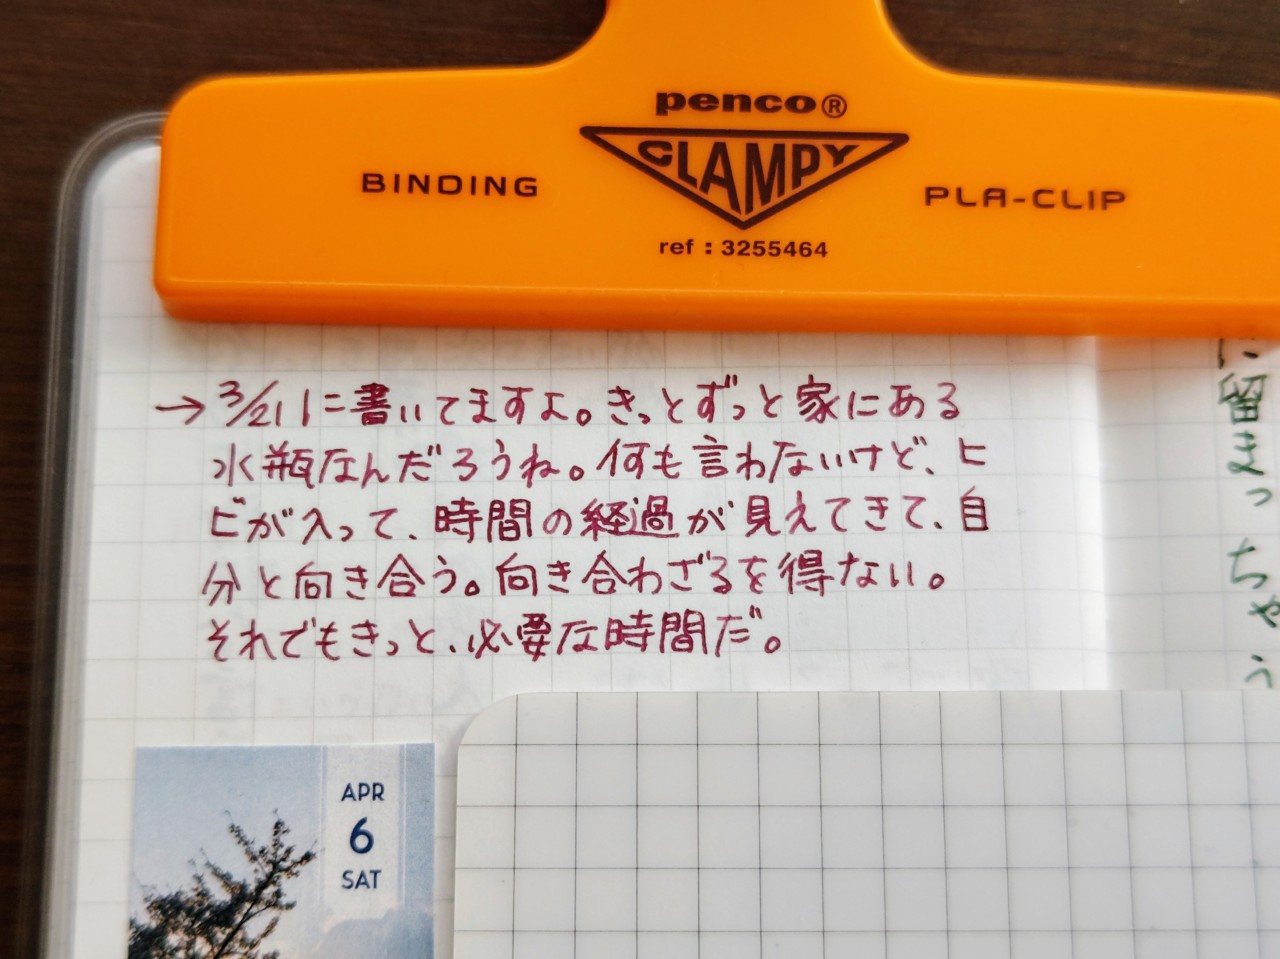 penco®
CLAMPY
BINDING
PLA-CLIP
ref : 3255464
→3/21に書いてますよ。きっとずっと家にある
水瓶なんだろうね。何も言わないけど、ヒ
ビが入って、時間の経過が見えてきて、自
分と向き合う。向き合わざるを得ない。
それでもきっと、必要な時間だ。
に留まっちゃう
APR
6
SAT